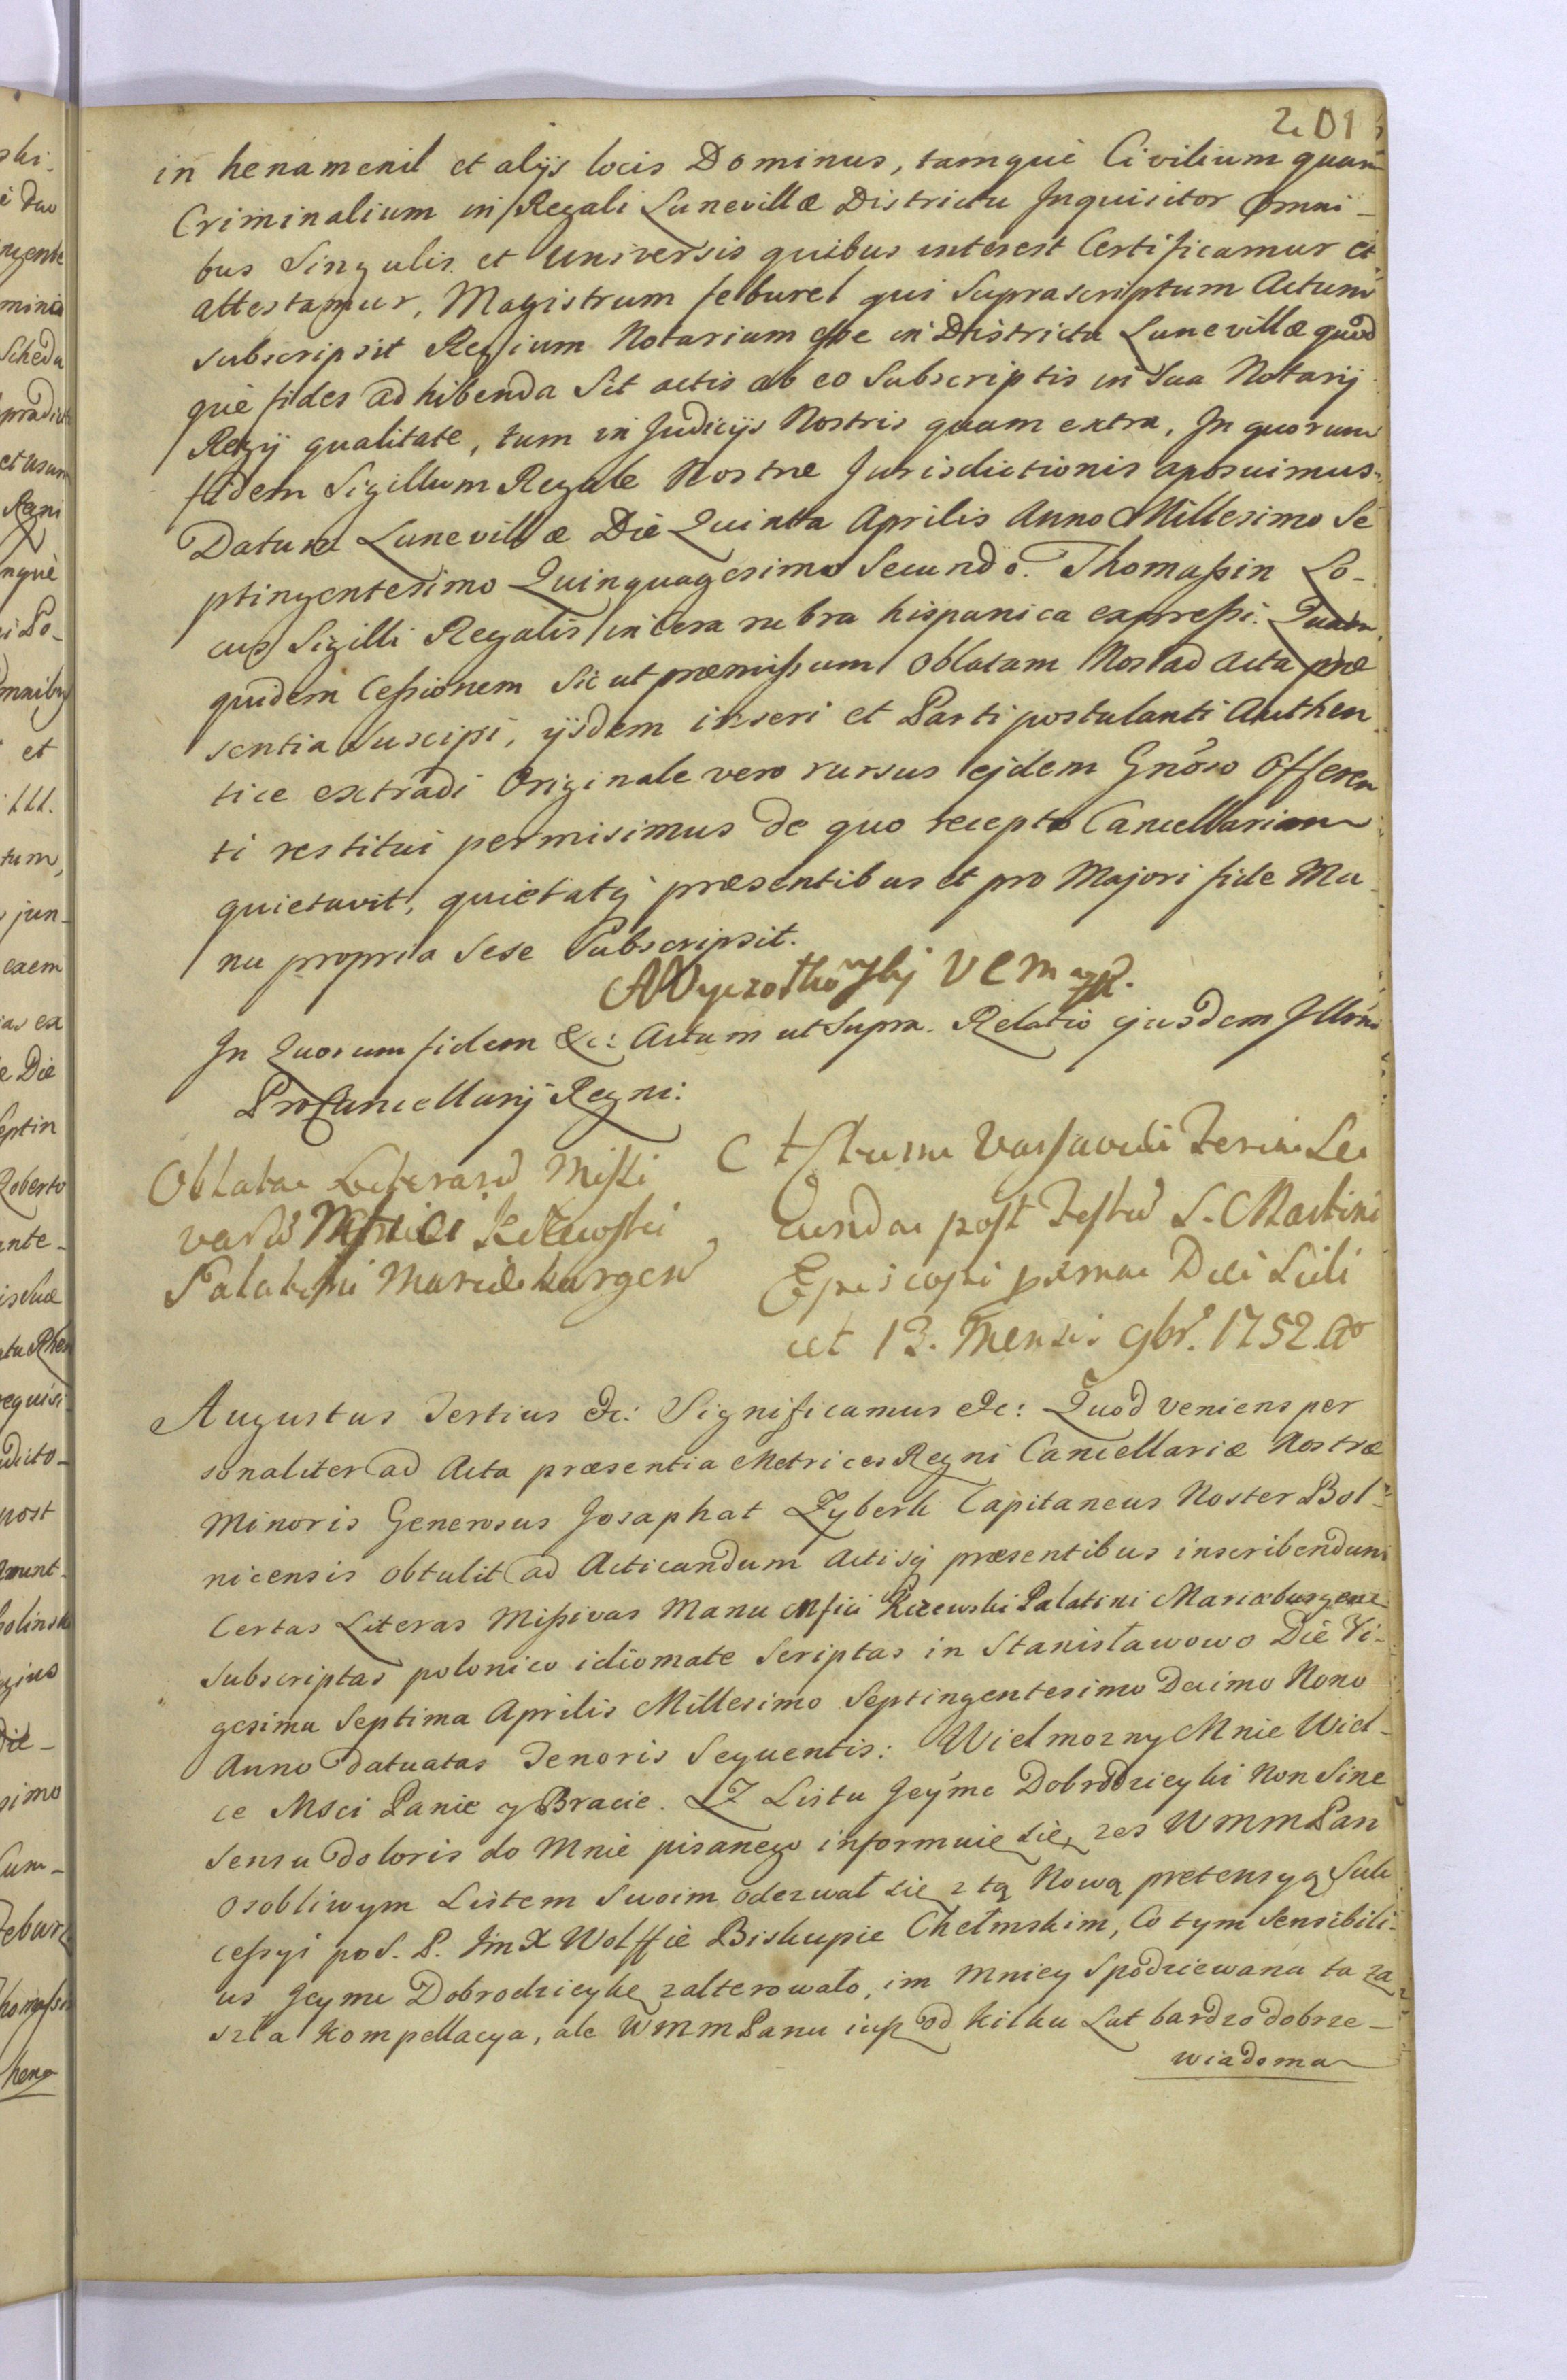 201
in henamenil et alijs locis Dominus, tamquè Civilium quam
Criminalium in Regali Lunevillæ Districtu Inquisitor Omni-
bus Singulis et Universis quibus interest Certificamur et
attestamur, Magistrum feburel qui Suprascriptum Actum
subscripsit Regium Notarium esse in Districtu Lunevillæ quod
què fides adhibenda Sit actis ab eo Subscriptis in Sua Notarij
Regij qualitate, tum in Judicijs Nostris quam extra, In quorum
fidem Sigillum Regale Nostræ Jurisdictionis aposuimus.
Datum Lunevillæ Die Quinta Aprilis Anno Millesimo Se
ptingentesimo Quinquagesimo Secundo. Thomassin Lo-
cus Sigilli Regalis in cera rubra hispanica expressi. Quam
quidem Cessionem Sic ut præmissum oblatam Nos ad Acta præ
sentia Suscipi, ijsdem inseri et Parti postulanti Authen
tice extradi Originale vero rursus ejdem Gnoso Offeren
ti restitui permisimus de quo recepto Cancellariam
quietavit, quietatq præsentibus et pro Majori fide Ma-
nu propria Sese Subscripsit.
In Quorum fidem &c: Actum ut Supra. Relatio ejusdem Illmi
Procancellarij Regni:
Oblatae Literarũ Missi
varũ Mfici Kczewski
Palatini Marieburgen
Actum Varsaviæ Feria Se
cunda post Festũ S. Martini
Episcopi prima Die Scili
cet 13. Mensis 9br. 1752. Ao
Augustus Tertius &c: Significamus &c: Quod veniens per
sonaliter ad Acta præsentia Metrices Regni Cancellariæ Nostræ
Minoris Generosus Josaphat Zyberk Capitaneus Noster Bol-
nicensis obtulit ad Acticandum Actisq præsentibus inscribendum
Certas Literas Missivas Manu Mfici Kczewski Palatini Mariæburgens
subscriptas polonico idiomate Scriptas in Stanisławowo Die Vi-
gesima Septima Aprilis Millesimo Septingentesimo Decimo Nono
Anno datuatas Tenoris Sequentis: Wielmozny Mnie Wiel-
ce Msci Panie y Bracie. Z Listu Jeymc Dobrodzieyki Non Sine
sensu doloris do Mnie pisanego informuię się, zes WMMPan
osobliwym Listem Swoim odezwał się z tą Nową pretensyą Suk
cessyi po S. P. JmX Wolffie Biskupie Chełmskim, Co tym Sensibili-
us Jeymc Dobrodzieykę zalterowało, im Mniey Spodziewana ta za
szła Kompellacya, ale WMMPanu iusz od kilku Lat bardzo dobrze-
wiadoma